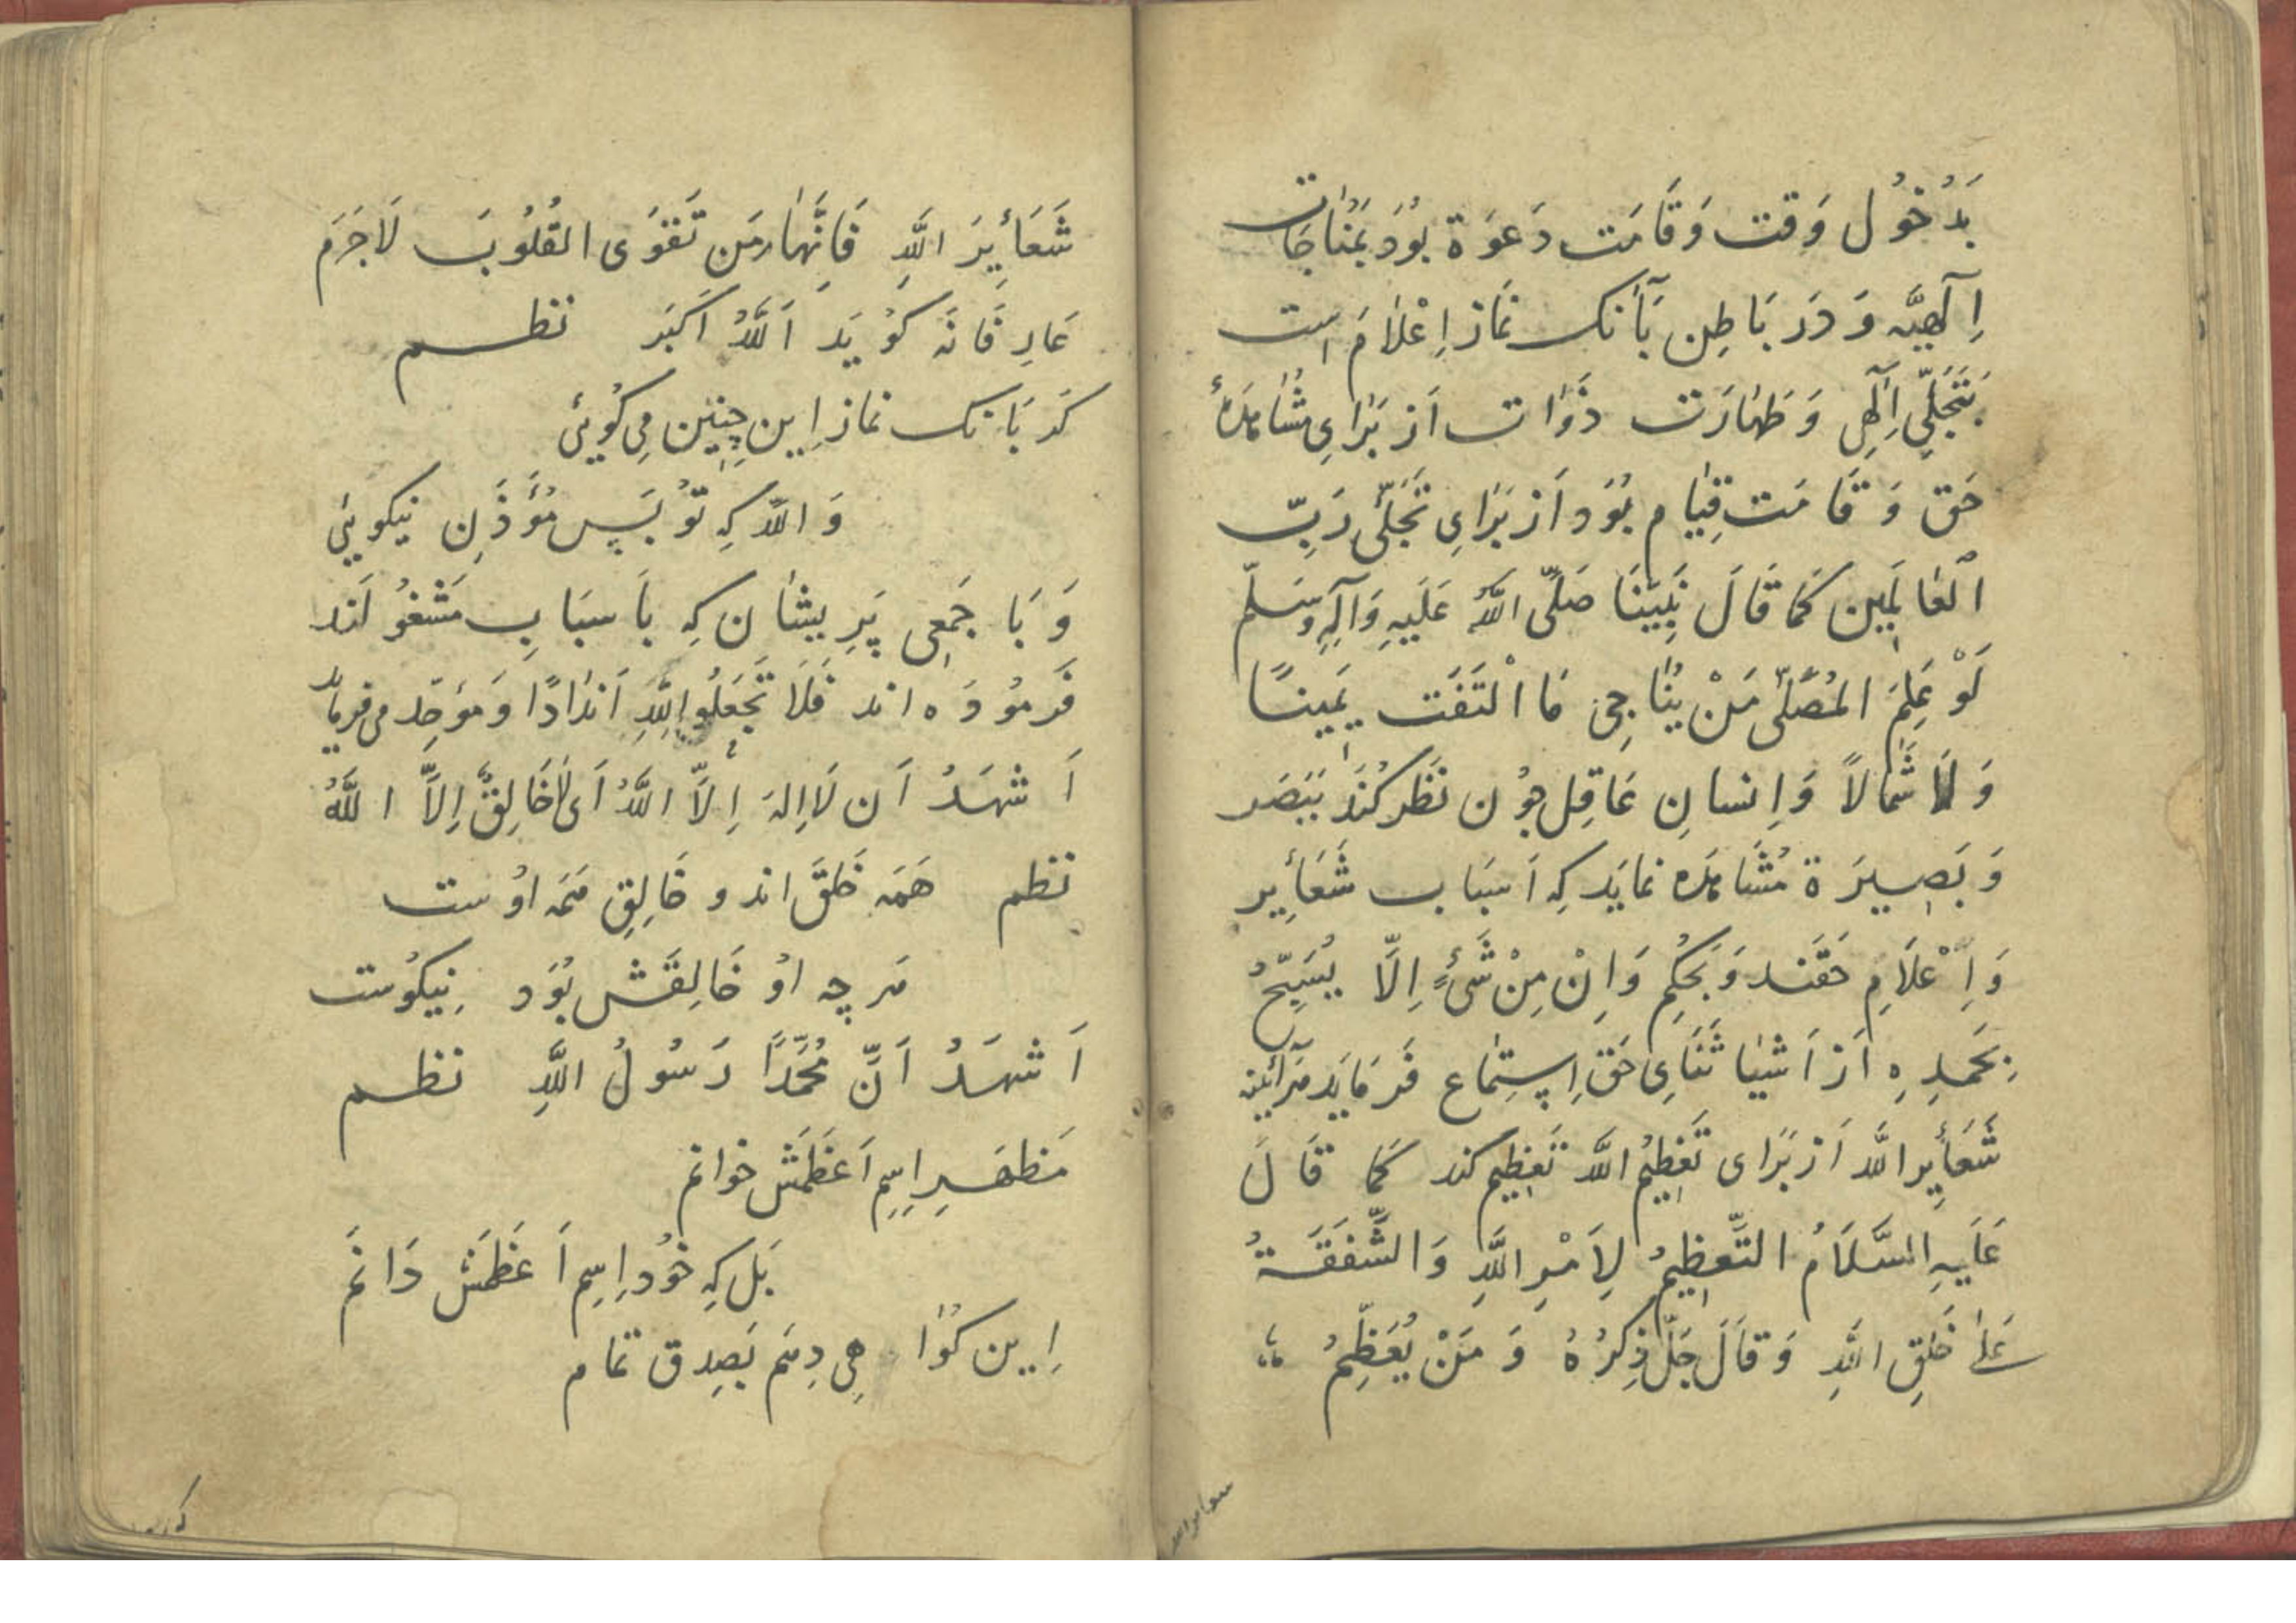 بَدُخُول وَقت وَقَامَت دَعوَة بُوَد بَمُنَاجَات
اِلٓهِیَّه وَ دَر بَاطِن بَآنک نمَاز اِعْلَام است
بَتَجَلّیِ اِلٓهِی وَ طَهَارَت ذَوَات اَز بَرَایِ مُشَاهَدَهٔ
حَق وَ قَامَت قِیَام بُوَد اَز بَرَایِ تَجَلّیِ رَبِّ
اَلعَالَمِین کَمَا قَالَ نَبِیّنَا صَلَّی اللَّهُ عَلَیهِ وَآلِهِ وَسَلّم
لَوْ عَلِمَ المُصَلّی مَنْ یُنَاجِی مَا الْتَفَت یَمِینًا
وَ لَا شَمَالاً وَ اِنسانِ عَاقِل چُون نَظَر کُنَد بَبَصَر
وَ بَصِیرَة مُشَاهَدَه نمایَد کِه اَسبَاب شَعَائِر
وَ اِعْلَامِ حَقَند وَ بَحُکمِ وَاِنْ مِنْ شَیءٍ اِلَّا یُسَبِّحُ
بِحَمدِهِ اَز اَشیَا ثَنَایِ حَق اِستِمَاع فَرمَایَد هَرآئینه
شَعَائِر اللَّه اَز بَرَای تَعظِیمُ اللَّه تَعظِیم کند کَمَا قَالَ
عَلَیهِ السَّلَامُ التَّعظِیمُ لِاَمْرِ اللَّهِ وَ الشَّفَقَةُ
عَلیٰ خَلقِ اللَّهِ وَ قَالَ جَلَّ ذِکرُهُ وَ مَنْ یُعَظِّمُ
شَعَائِرَ اللَّهِ فَاِنَّهَا مِن تَقوَی القُلُوب لَاجَرَم
عَارِفَانَه کُویَد اَللَّهُ اَکبَر نظم
کَر بَانک نماز اِین چِنِین مِی کُویئ
وَ اللَّه کِه تُو بَس مُؤَذِّن نیکویئ
وَ بَا جَمعِی پَرِیشَان کِه بَاسبَابِ مَشغُولَند
فَرمُودَه اند فَلَا تَجعَلُوا لِلَّهِ اَندَادًا وَ مُوَحِّد می فرماید
اَشهَدُ اَن لَا اِلهَ اِلَّا اللَّهُ اَی لَا خَالِقٌ اِلَّا اللَّهُ
نظم هَمَه خَلق اند و خَالِقِ هَمَه اوُست
هَر چه اوُ خَالِقَش بُوَد نِیکُوست
اَشهَدُ اَنَّ مُحَمَّدًا رَسُولُ اللَّهِ نظم
مَظهَرِ اِسِمِ اَعظَمَش خوانم
بَل کِه خُود اِسِم اَعظَمَش دَانَم
اِین کُوَا هِی دِهَم بَصِدق تمام